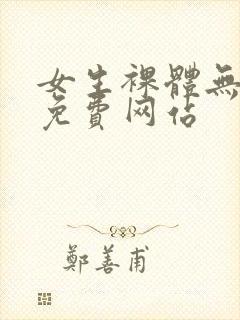 女生裸體無
免費网佔
鄭善甫